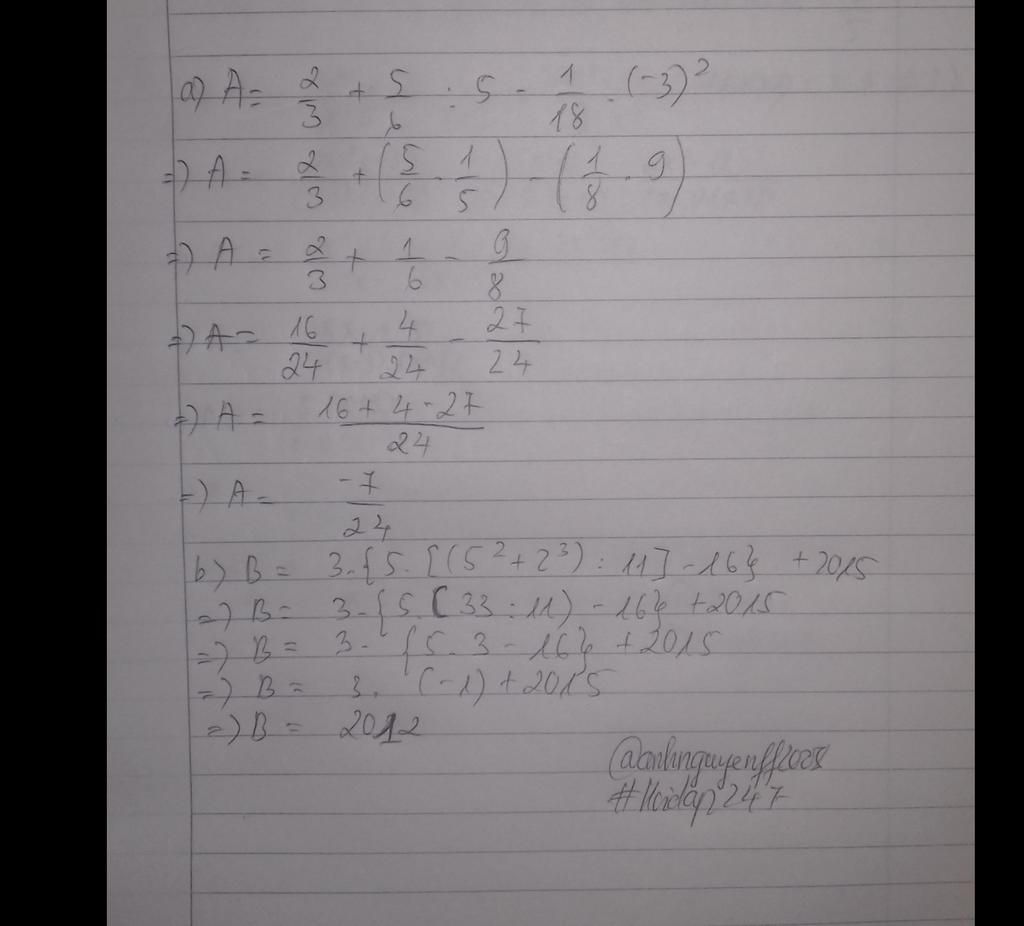 a) A = 2/3 + 5/6 : 5 - 1/18 . (-3)²
=) A = 2/3 + (5/6 . 1/5) - (1/8 . 9)
=) A = 2/3 + 1/6 - 9/8
=) A = 16/24 + 4/24 - 27/24
=) A = (16 + 4 - 27)/24
=) A = -7/24
b) B = 3.{5.[(5² + 2³) : 11] - 16} + 2015
=) B = 3.{5.(33 : 11) - 16} + 2015
=) B = 3. {5. 3 - 16} + 2015
=) B = 3. (-1) + 2015
=) B = 2012
@anhnguyenff2008
#Hoidap247